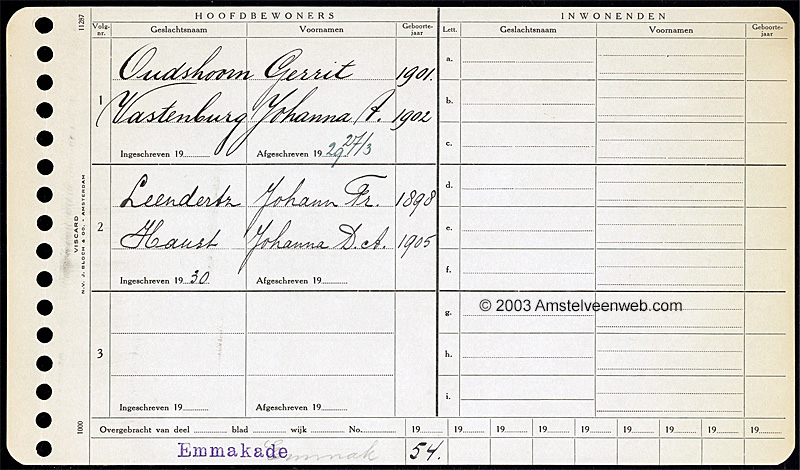 HOOFDBEWONERS INWONENDEN
11287
Volg-nr. Geslachtsnaam Voornamen Geboorte-jaar Lett. Geslachtsnaam Voornamen Geboorte-jaar
Oudshoorn Gerrit 1901.
1
Vastenburg Johanna A. 1902
Ingeschreven 19 Afgeschreven 19 29 27/3
Leendertz Johann Fr. 1898
2
Haust Johanna D. A. 1905
Ingeschreven 19 30 Afgeschreven 19
3
Ingeschreven 19 Afgeschreven 19
a.
b.
c.
d.
e.
f.
g.
h.
i.
© 2003 Amstelveenweb.com
VISCARD
N.V. J. BLOCH & CO. - AMSTERDAM
1000
Overgebracht van deel blad wijk No. 19 19 19 19 19 19 19 19 19
Emmakade Emmak 54.